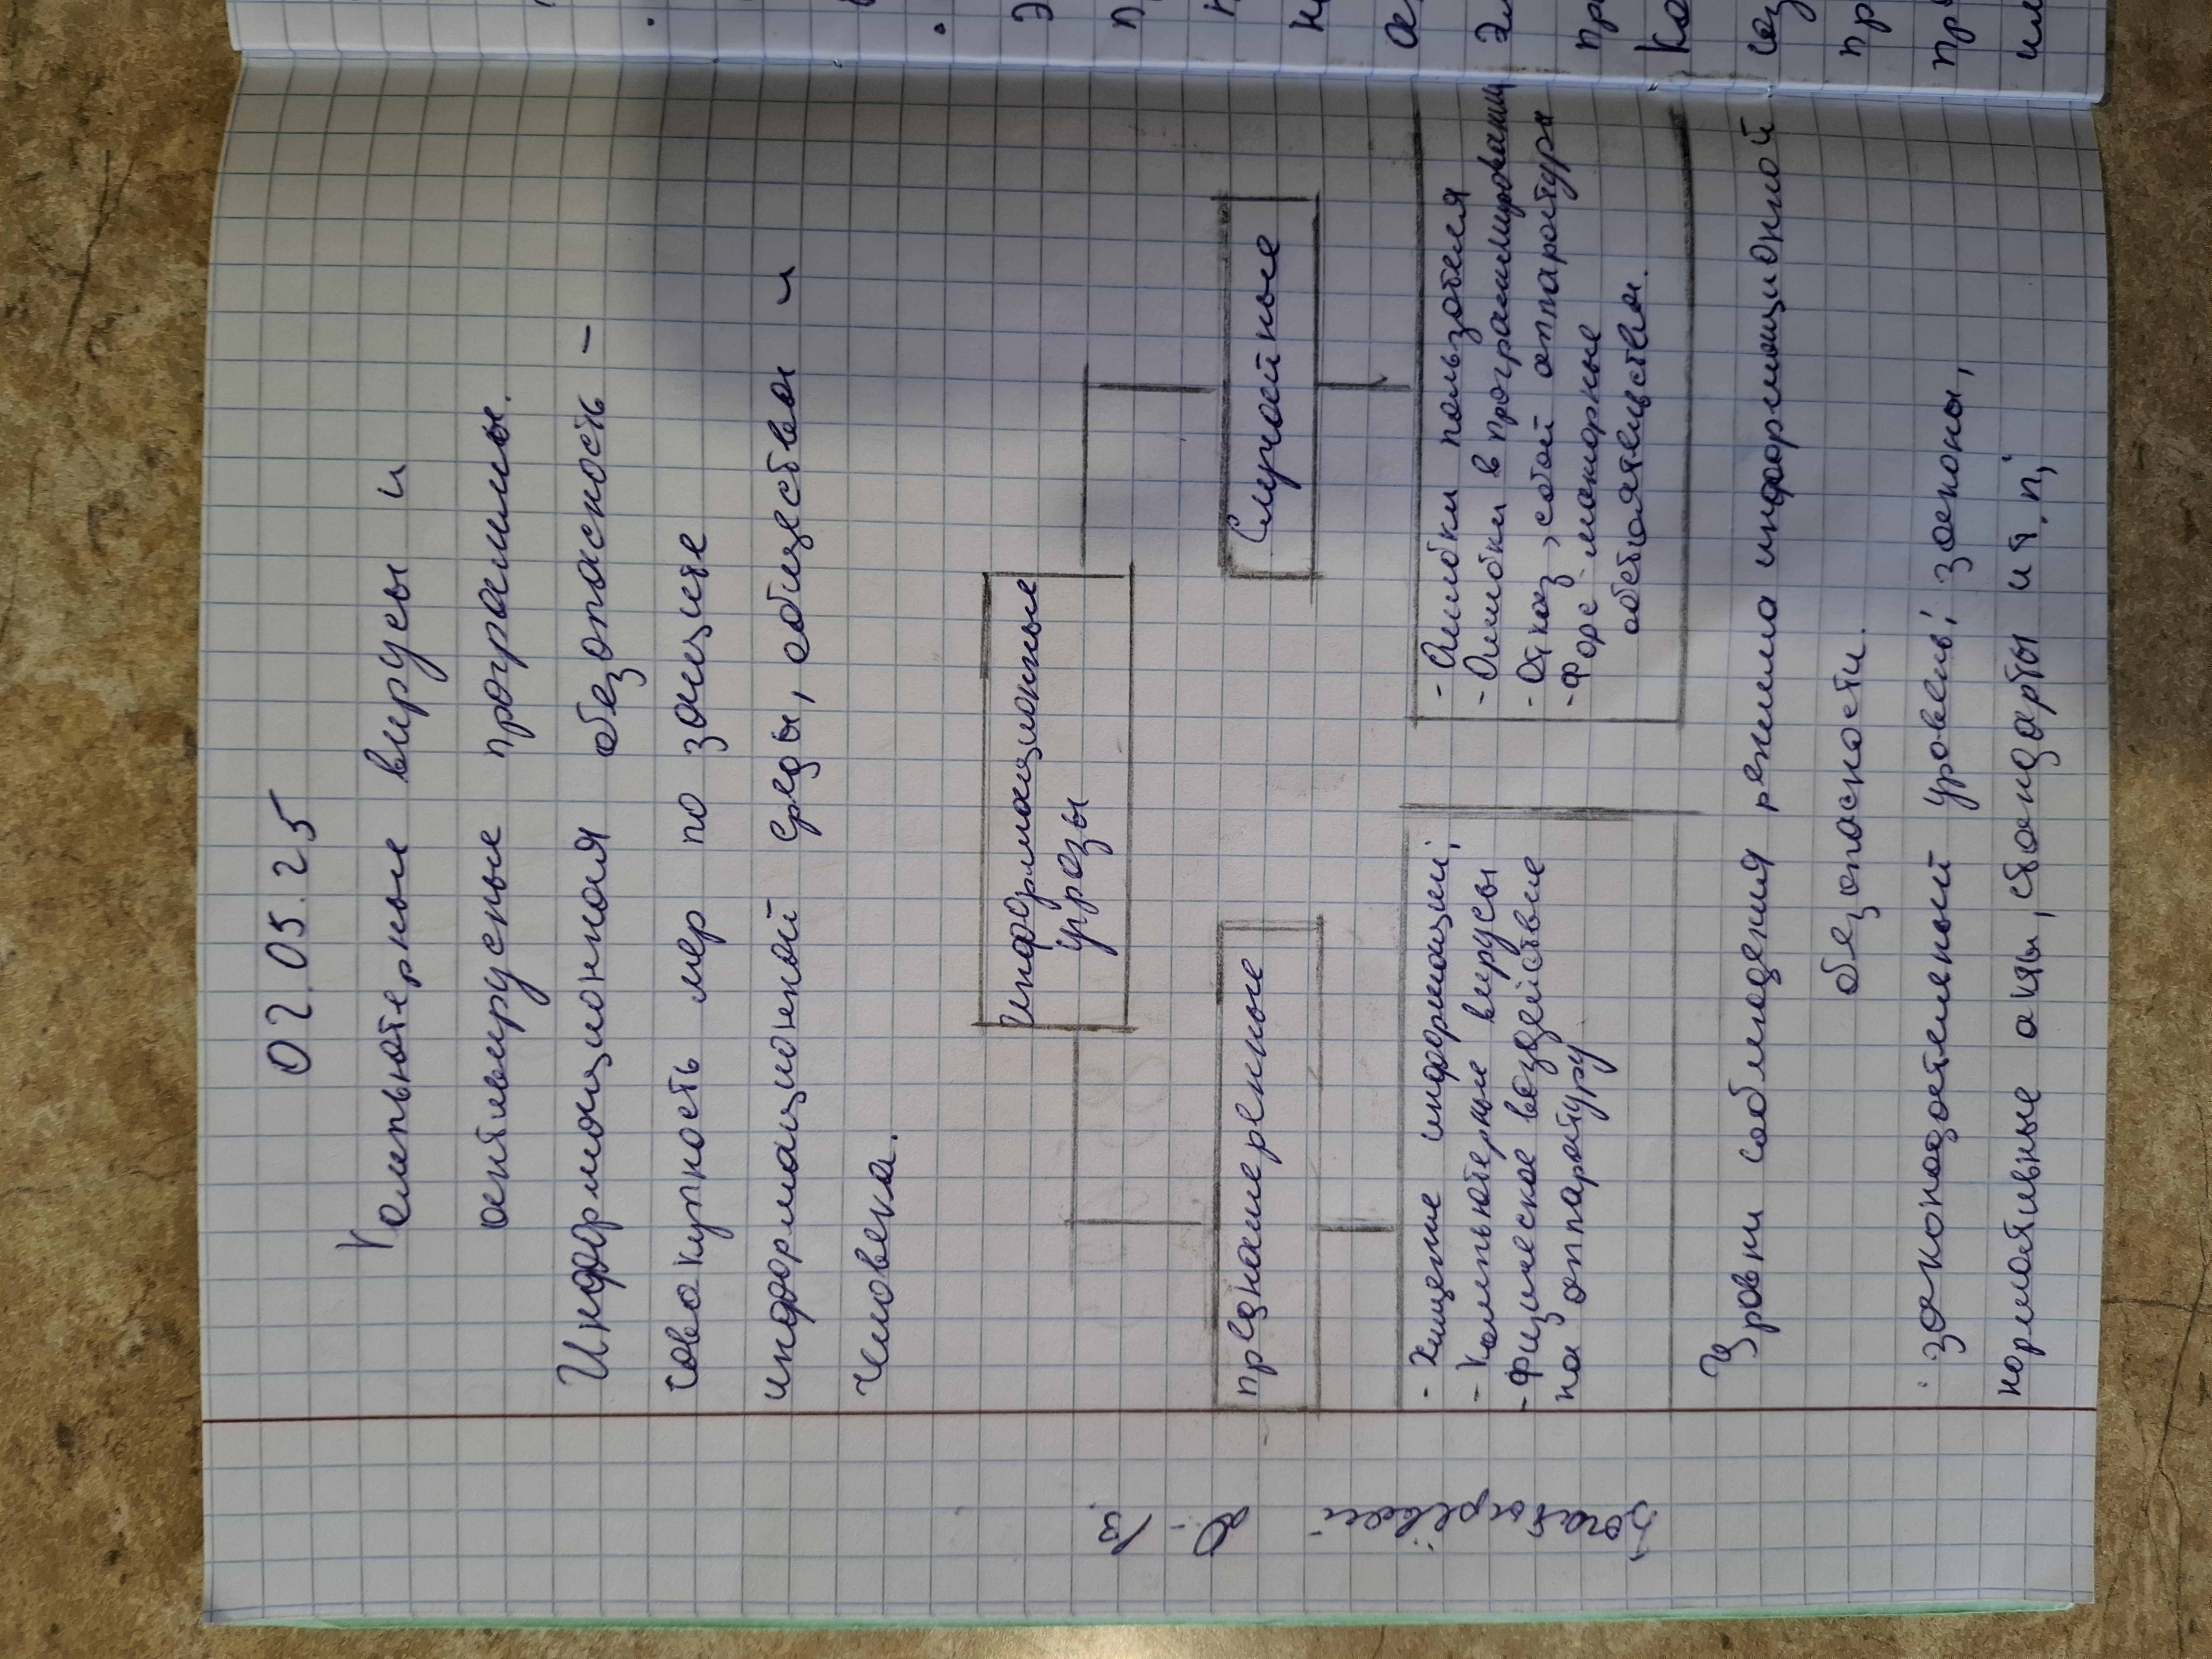 02.05.25
Компьютерные вирусы и
антивирусные программы.
Информационная безопасность –
совокупность мер по защите
информационной среды, общества и
человека.
Информационные
угрозы
преднамеренные
Случайные
- Хищение информации;
- Компьютерные вирусы
- Физическое воздействие
на аппаратуру
- Ошибки пользователя
- Ошибки в программировании
- Отказ, сбой аппаратура
- Форс-мажорные
обстоятельства.
Уровни соблюдения режима информационной
безопасности.
· законодательный уровень: законы,
нормативные акты, стандарты и т.п;